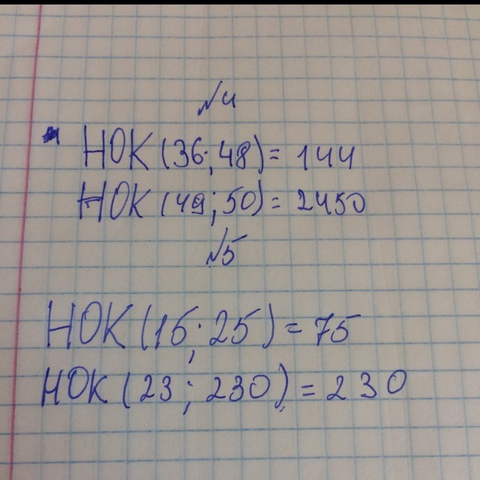 №4
НОК (36; 48) = 144
НОК (49; 50) = 2450
№5
НОК (15; 25) = 75
НОК (23; 230) = 230